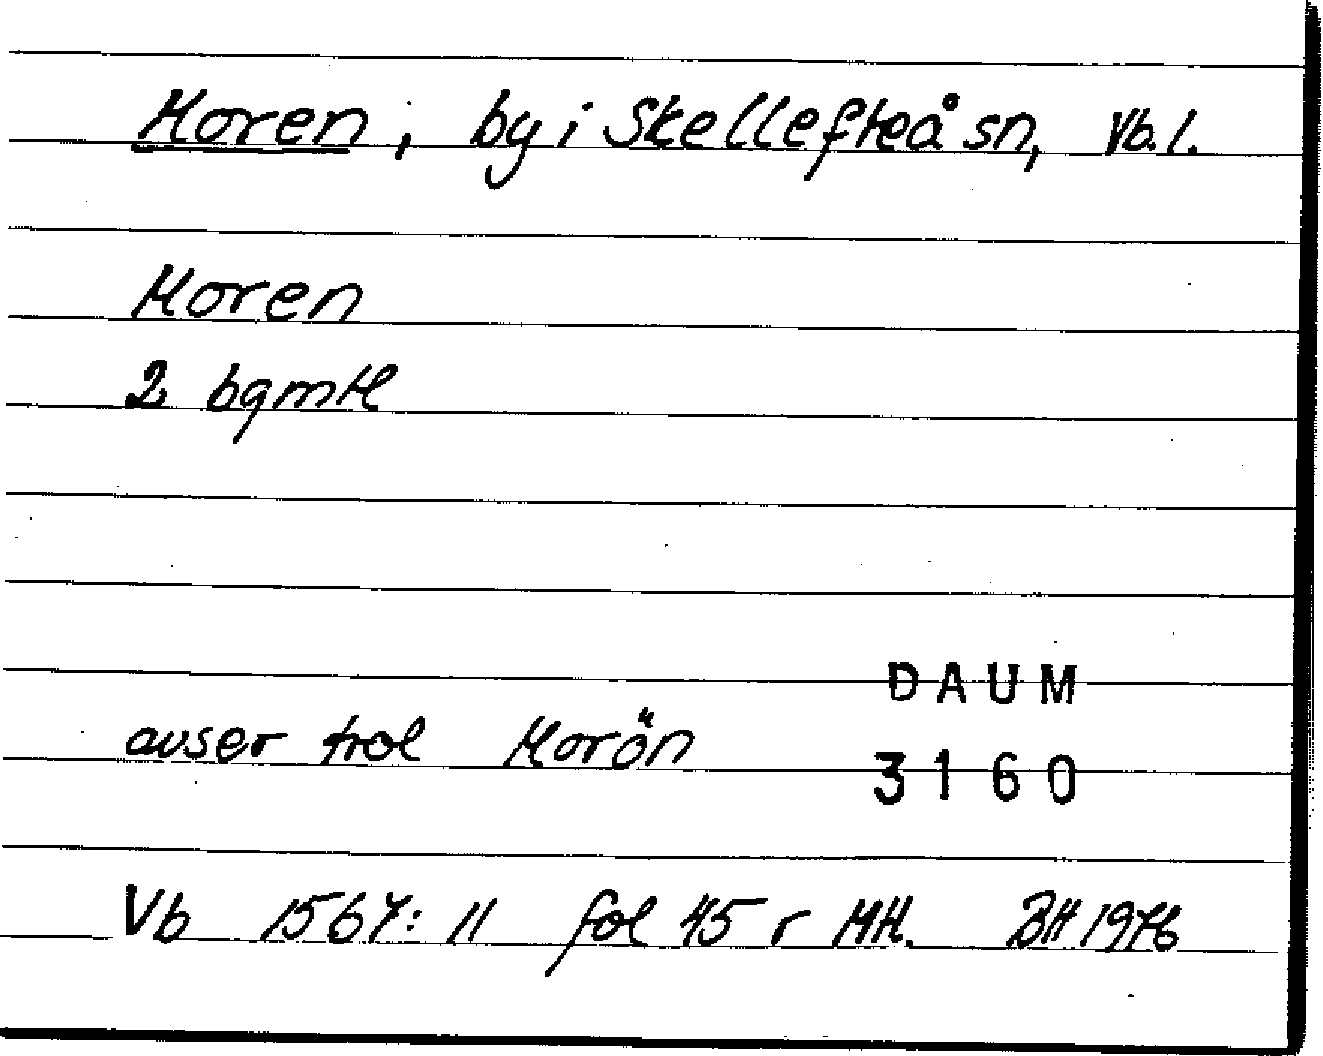 Moren, by i Skellefteå sn, Vb. l.
Moren
2 bgmtl
DAUM
avser trol Morön
3160
Vb 1567: 11 fol 45 r MH. BH 1976